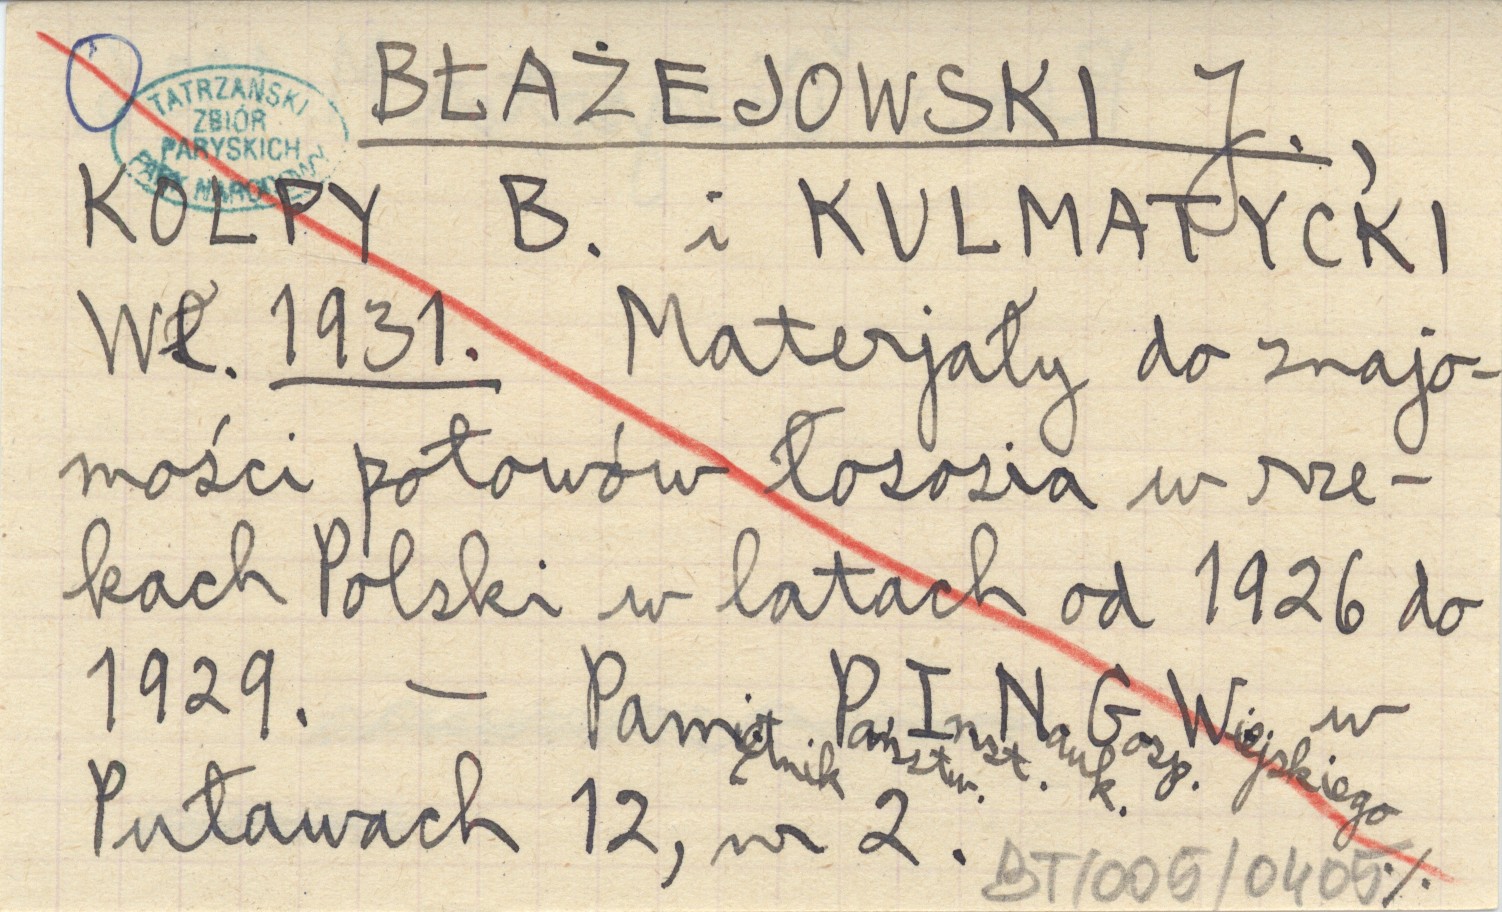 TATRZAŃSKI
ZBIÓR
PARYSKICH
PARK NARODOWY
BŁAŻEJOWSKI J.,
KOLPY B. i KULMATYCKI
Wł. 1931. Materjały do znajo-
mości połowów łososia w rze-
kach Polski w latach od 1926 do
1929. — Pamiętnik Państw. Inst. Nauk. Gosp. Wiejskiego w
Puławach 12, nr 2.
BT/005/0405 ./.